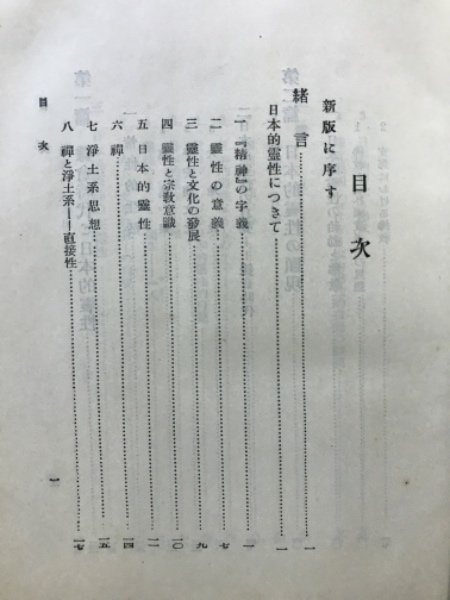 目次
新版に序す
緒言……一
日本的靈性につきて……一
一 『精神』の字義……一
二 靈性の意義……七
三 靈性と文化の發展……九
四 靈性と宗敎意識……一〇
五 日本的靈性……一一
六 禪……一四
七 淨土系思想……一五
八 禪と淨土系――直接性……一七
目次
一